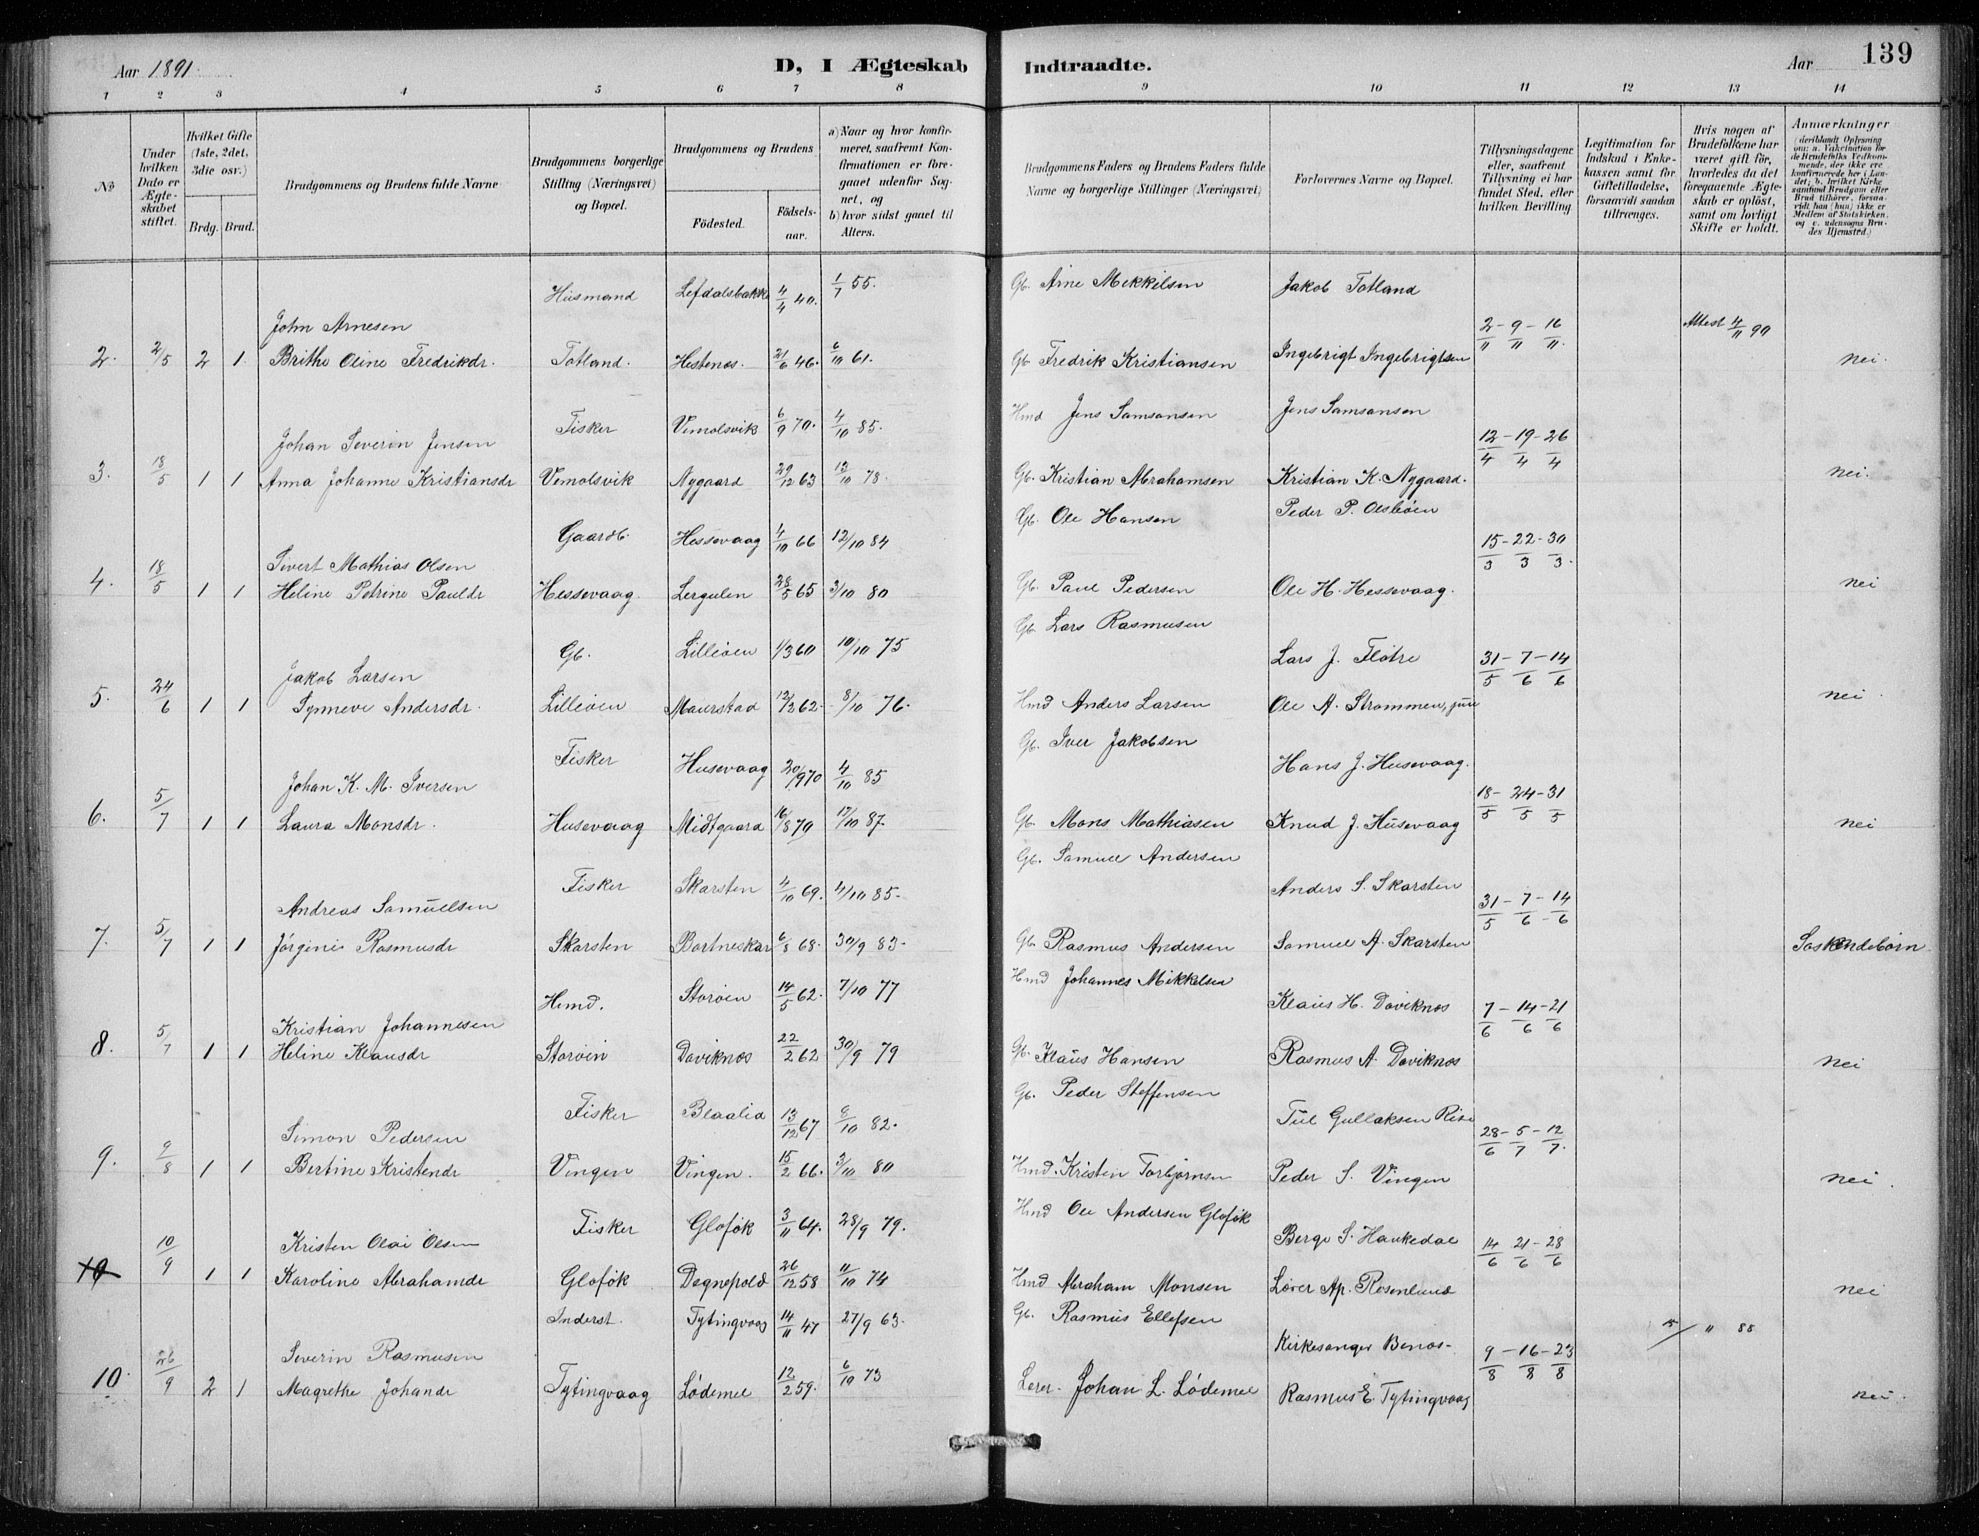 Aar 1891
D, I Ægteskab
Indtraadte.
Aar
139
1 2 3 4 5 6 7 8 9 10 11 12 13 14
No
Under hvilken Dato er Ægteskabet stiftet.
Hvilket Gifte (1ste, 2det, 3die osv.)
Brdg. Brud.
Brudgommens og Brudens fulde Navne
Brudgommens borgerlige Stilling (Næringsvei) og Bopæl.
Brudgommens og Brudens
Fødested.
Fødselsaar.
a) Naar og hvor konfirmeret, saafremt Konfirmationen er foregaaet udenfor Sognet, og
b) hvor sidst gaaet til Alters.
Brudgommens Faders og Brudens Faders fulde Navne og borgerlige Stillinger (Næringsvei)
Forlovernes Navne og Bopæl.
Tillysningsdagene eller, saafremt Tillysning ei har fundet Sted, efter hvilken Bevilling
Legitimation for Indskud i Enkekassen samt for Giftetilladelse, forsaavidt saadan tiltrænges.
Hvis nogen af Brudefolkene har været gift før, hvorledes da det foregaaende Ægteskab er opløst, samt om lovligt Skifte er holdt.
Anmærkninger
Husmand Lefdalsbakke 4/4 40. 1/7 55. Gb. Arne Mekkelsen Jakob Totland
John Arnesen 2/11 - 9/11 - 16/11. Attest 4/11 90
2. 2/5 2 1. Brithe Oline Fredrikdr. Totland. Hestenes. 21/6 46. 6/10 61. Gb Fredrik Kristiansen Ingebrigt Ingebrigtsen nei.
Fisker Vemolsvik 6/9 70. 4/10 85. Hmd Jens Samsonsen Jens Samsonsen
Johan Severin Jensen 12/4 - 19/4 - 26/4
3. 18/5 1 1 Anna Johanne Kristiansdr Vemolsvik Nygaard 29/12 63 12/10 78. Gb. Kristian Abrahamsen Kristian K. Nygaard. nei.
Gaardb. Hessevaag 4/10 66 12/10 84 Gb. Ole Hansen Peder P. Olsbøen
Sivert Mathias Olsen 15/3 - 22/3 - 30/3.
4. 18/5 1 1 Heline Petrine Pauldr Hessevaag Lergulen 28/5 65 3/10 80 Gb. Paul Pedersen Ole H. Hessevaag. nei
Gb. Lilleøen 1/3 60 10/10 75 Gb. Lars Rasmusen Lars J. Flotre
Jakob Larsen 31/5 - 7/6 - 14/6
5. 24/6 1 1 Synneve Andersdr. Lilleøen Maurstad 12/2 62. 8/10 76. Hmd Anders Larsen Ole A. Strommen, nei.
Fisker Husevaag 20/9 70 4/10 85 Gb. Iver Jakobsen Hans J. Husevaag.
Johan K. M. Iversen 18/5 - 24/5 - 31/5
6. 5/7 1 1 Laura Monsdr. Husevaag Midtgaard 16/8 70 17/10 87. Gb. Mons Mathiasen Knud J. Husevaag nei
Fisker Skarsten 4/10 69. 4/10 85. Gb. Samuel Andersen Anders S. Skarsten
Andreas Samuelsen 31/5 - 7/6 - 14/6
7. 5/7 1 1 Jørgine Rasmusdr Skarsten Bortneskar 6/8 68. 30/9 83. Gb. Rasmus Andersen Samuel A. Skarsten Soskendebørn.
Hmd. Storøen 14/5 62. 7/10 77 Hmd Johannes Mikkelsen Klaus H. Daviknes
Kristian Johannesen 7/6 - 14/6 - 21/6
8. 5/7 1 1 Heline Klausdr Storøen Daviknes 22/2 62 30/9 79 Gb. Klaus Hansen Rasmus A. Daviknes nei
Fisker Blaalid 13/12 67 8/10 82. Gb. Peder Steffensen Gullaksen
Simon Pedersen 28/6 - 5/7 - 12/7.
9. 9/8 1 1 Bertine Kristendr Vingen Vingen. 15/2 66. 3/10 80 Hmd. Kristen Torbjørnsen Peder S. Vingen nei.
Fisker Gloføk 3/11 64. 28/9 79. Hmd Ole Andersen Gloføk Berge S. Haukedal
Kristen Olai Olsen 14/6 21/6 - 28/6
10 10/9 1 1 Karoline Abrahamdr Gloføk Degnepold 26/12 58 11/10 74 Hmd Abraham Monsen Rosenlund nei
Inderst. Tytingvaag 14/11 47 27/9 63. Gb. Rasmus Ellefsen Kirkesanger 15/11 88
Severin Rasmusen 9/8 - 16/8 - 23/8
10. 26/9 2 1 Magrethe Johandr Tytingvaag Lødemel 12/2 59. 6/10 73 Lerer. Johan L. Lødemel Rasmus E. Tytingvaag nei.